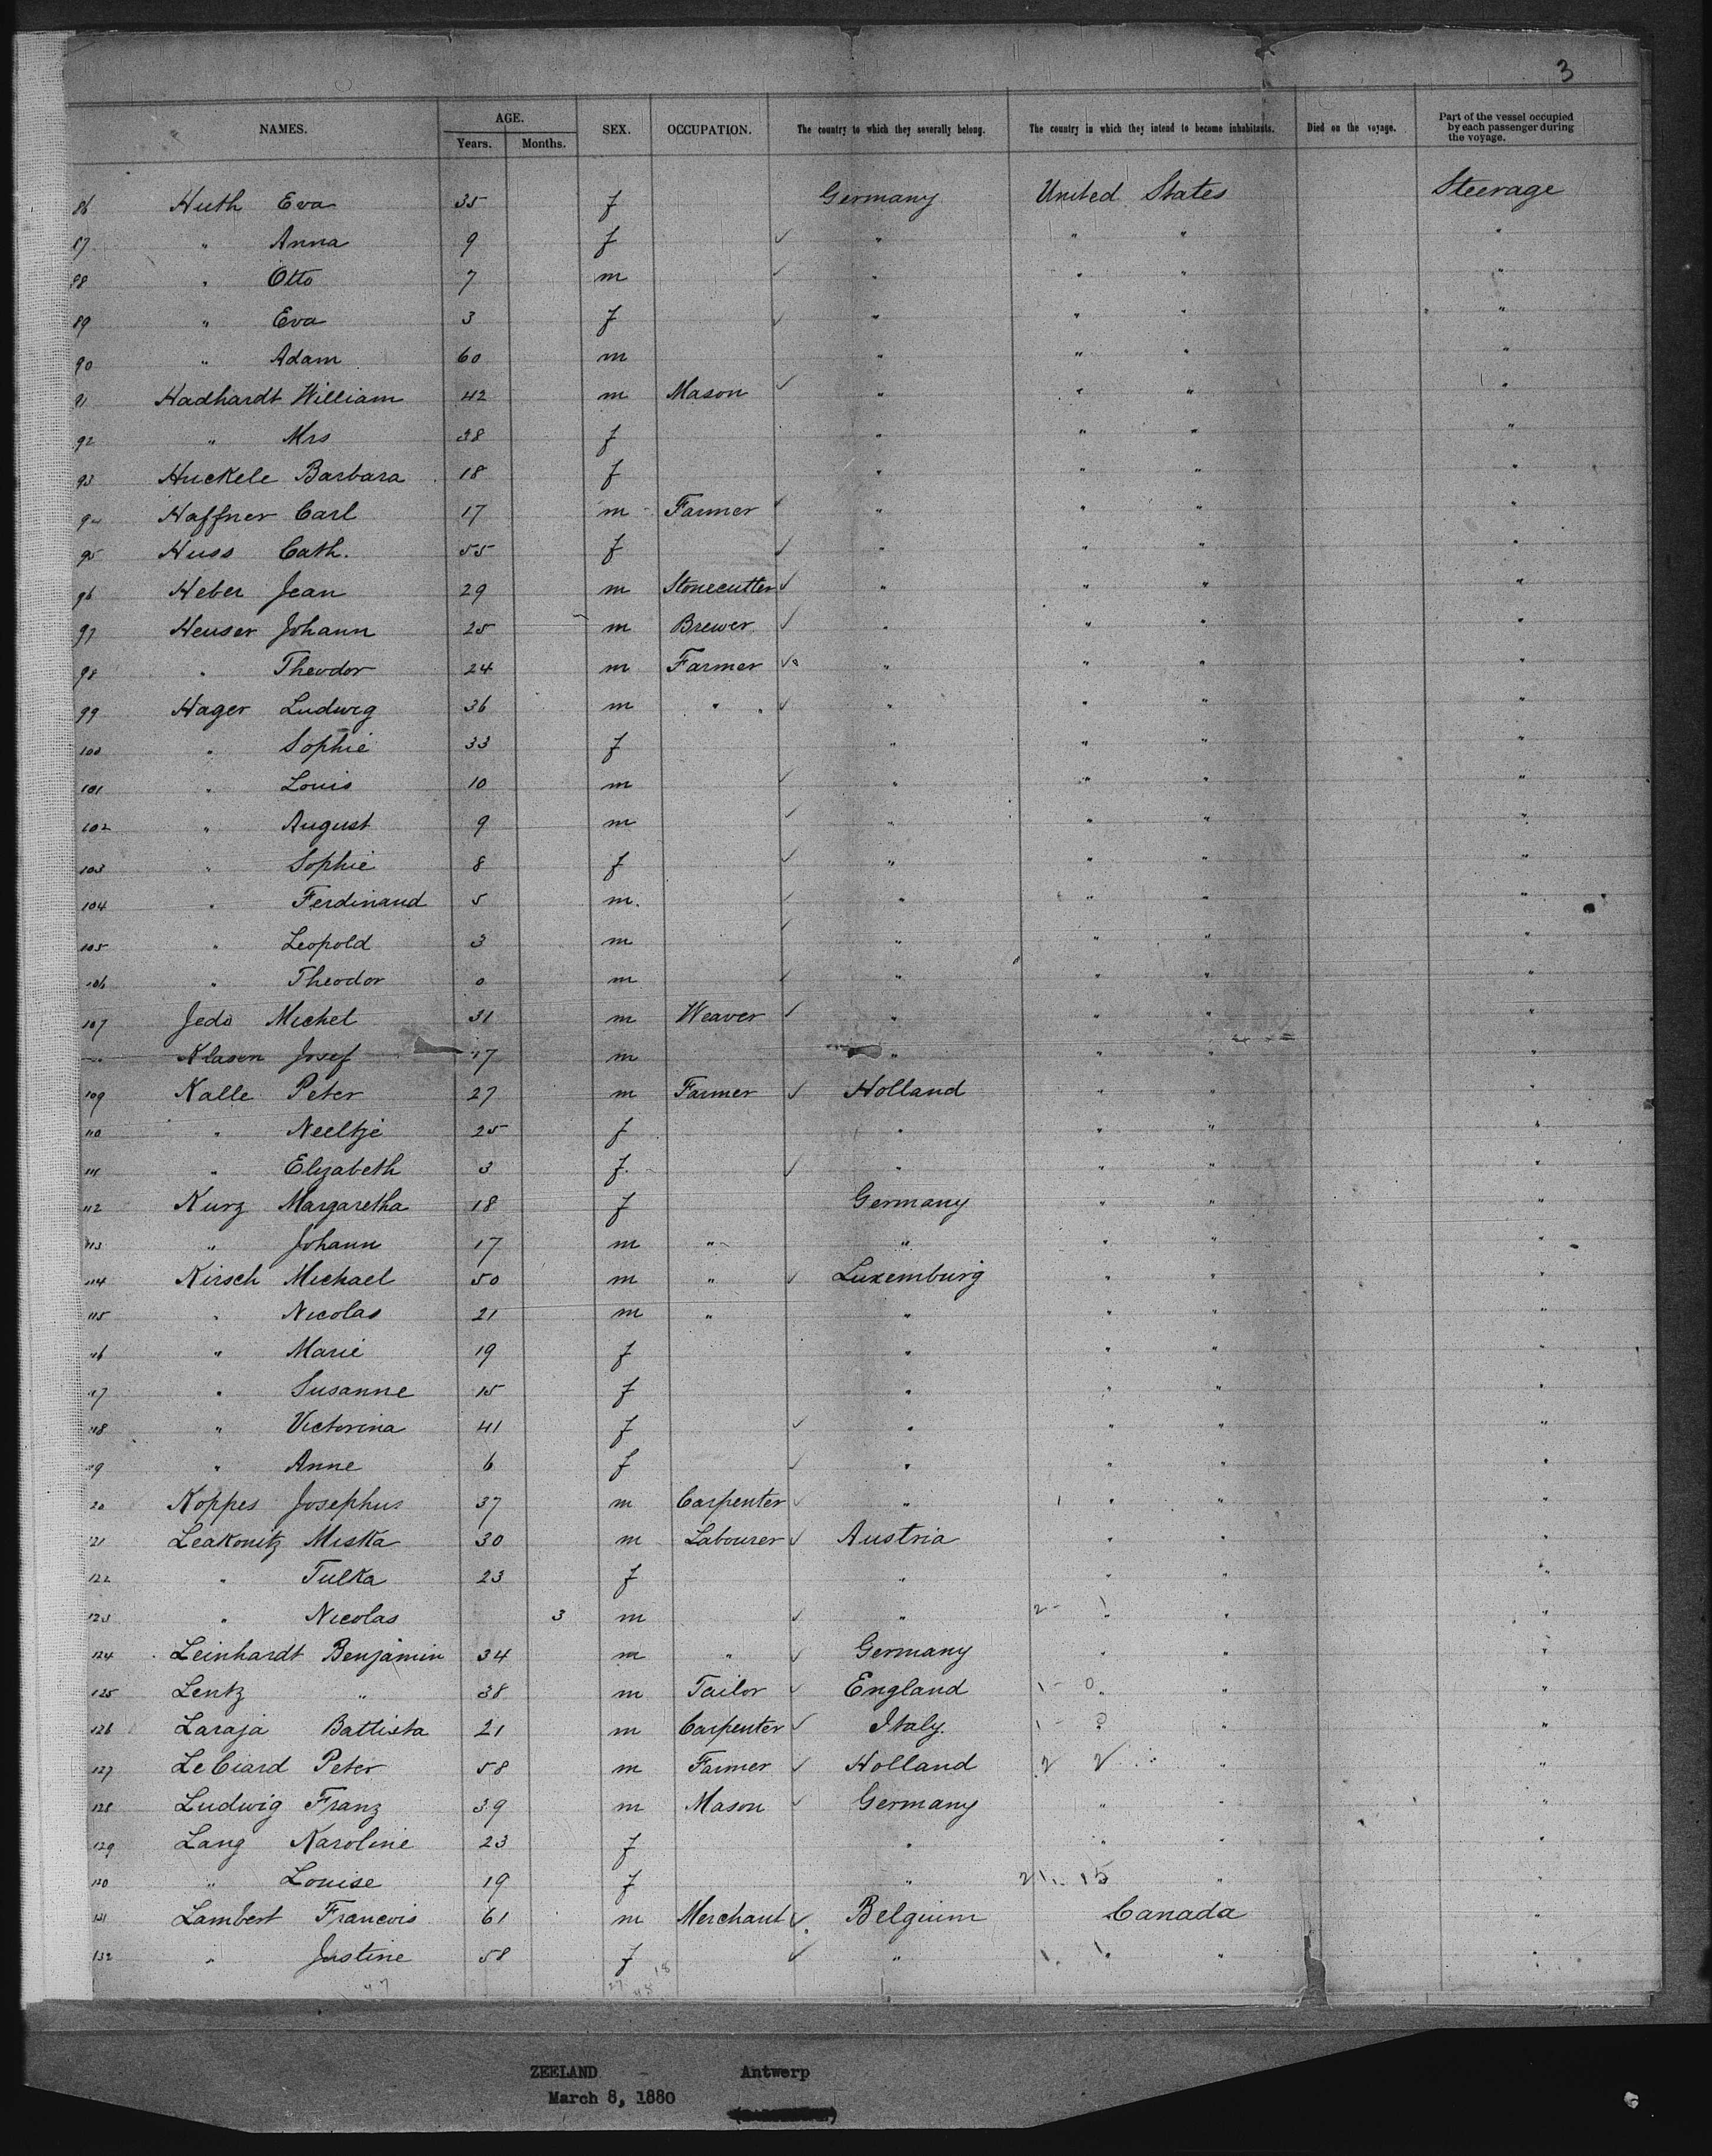 3
NAMES. AGE. Years. Months. SEX. OCCUPATION. The country to which they severally belong. The country in which they intend to become inhabitants. Died on the voyage. Part of the vessel occupied by each passenger during the voyage.
86 Huth Eva 35 f Germany United States Steerage
87 " Anna 9 f ✓ " " " "
88 " Otto 7 m ✓ " " " "
89 " Eva 3 f ✓ " " " "
90 " Adam 60 m " " " "
91 Hadhardt William 42 m Mason ✓ " " " "
92 " Mrs 38 f " " " "
93 Huckele Barbara 18 f " " " "
94 Haffner Carl 17 m Farmer ✓ " " " "
95 Huss Cath. 55 f ✓ " " " "
96 Heber Jean 29 m Stonecutter ✓ " " " "
97 Heuser Johann 25 m Brewer ✓ " " " "
98 " Theodor 24 m Farmer ✓ " " " "
99 Hager Ludwig 36 m " ✓ " " " "
100 " Sophie 33 f " " " "
101 " Louis 10 m ✓ " " " "
102 " August 9 m ✓ " " " "
103 " Sophie 8 f ✓ " " " "
104 " Ferdinand 5 m. ✓ " " " "
105 " Leopold 3 m ✓ " " " "
106 " Theodor 0 m ✓ " " " "
107 Jedo Michel 31 m Weaver ✓ " " " "
Klasen Josef 17 m " " " "
109 Kalle Peter 27 m Farmer ✓ Holland " " "
110 " Neeltje 25 f " " " "
111 " Elizabeth 3 f. ✓ " " " "
112 Kurz Margaretha 18 f Germany " " "
113 " Johann 17 m " " " " "
114 Kirsch Michael 50 m " ✓ Luxemburg " " "
115 " Nicolas 21 m " " " " "
116 " Marie 19 f " " " "
117 " Susanne 15 f " " " "
118 " Victorina 41 f ✓ " " " "
119 " Anne 6 f ✓ " " " "
20 Koppes Josephus 37 m Carpenter ✓ " " " "
121 Leakonitz Miska 30 m Labourer ✓ Austria " " "
122 " Tulka 23 f " " " "
123 " Nicolas 3 m ✓ " 2 - 1 " " "
124 Leinhardt Benjamin 34 m " ✓ Germany " " "
125 Lentz " 38 m Tailor ✓ England 1 - 0 " " "
126 Laraja Battista 21 m Carpenter ✓ Italy. 1 - 0 " " "
127 LeCiard Peter 58 m Farmer ✓ Holland 2 2 " " "
128 Ludwig Franz 39 m Mason ✓ Germany " " "
129 Lang Karoline 23 f " " " "
130 " Louise 19 f " 21. 15 " "
131 Lambert Francois 61 m Merchant ✓ Belgium Canada "
132 " Justine 58 f ✓ " 1. 1 " " "
47 27 48 18
ZEELAND - Antwerp
March 8, 1880